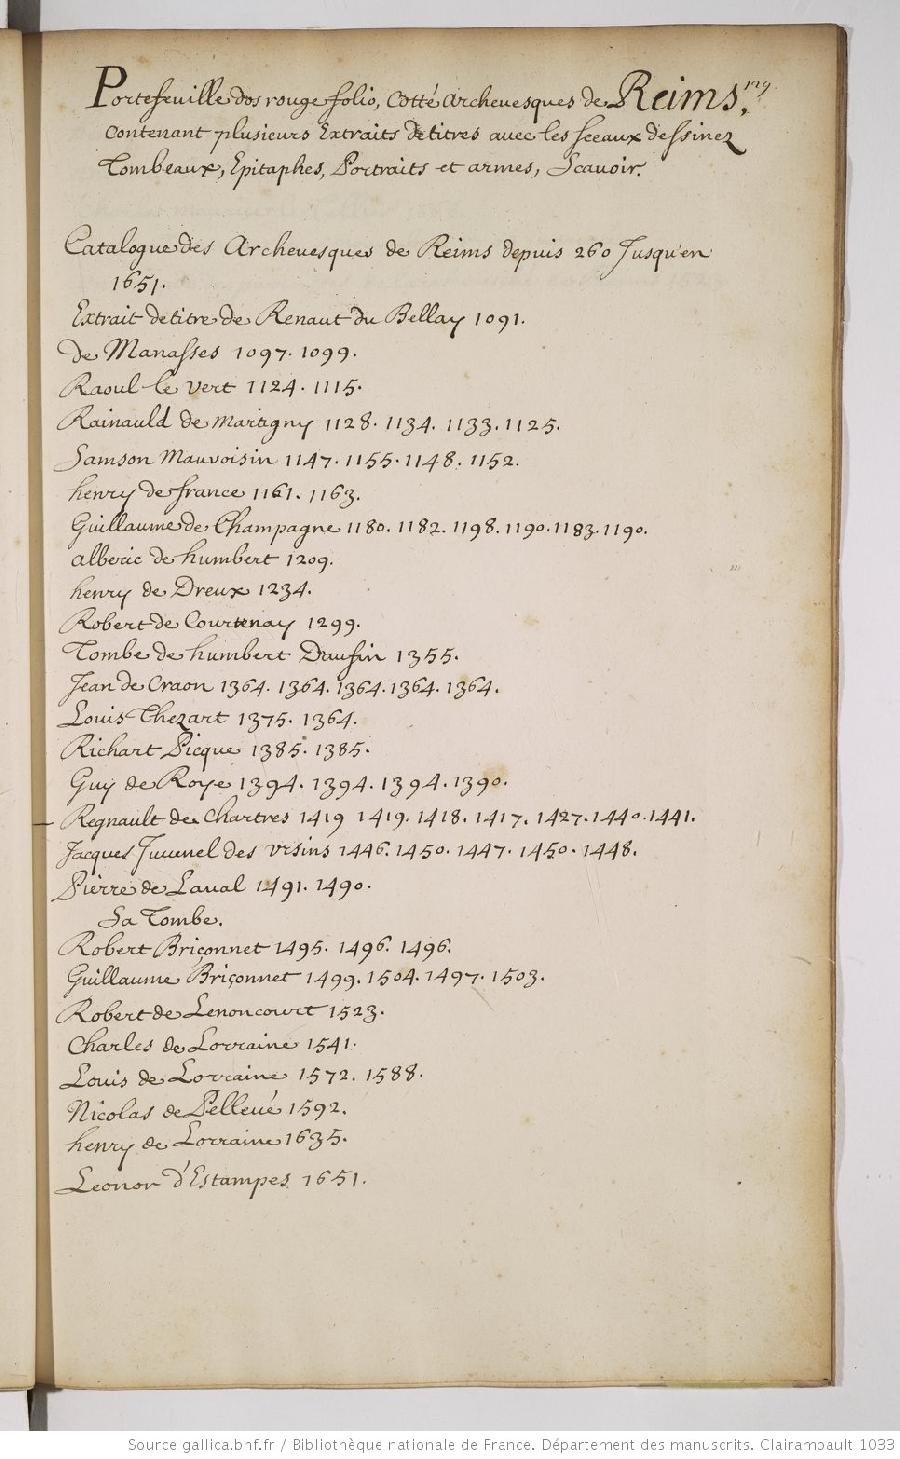 129.
Portefeuille dos rouge folio, Cotté archeuesques de Reims.
Contenant plusieurs Extraits de titres auec les sceaux dessinez
Tombeaux, Epitaphes, Portraits et armes, Scauoir.
Catalogue des Archeuesques de Reims depuis 260 Jusqu'en
1651.
Extrait de titre de Renaut du Bellay 1091.
de Manasses 1097. 1099.
Raoul le vert 1124. 1115.
Rainauld de Martigny 1128. 1134. 1133. 1125.
Samson Mauvoisin 1147. 1155. 1148. 1152.
henry de france 1161. 1163.
Guillaume de Champagne 1180. 1182. 1198. 1190. 1183. 1190.
alberic de humbert 1209.
henry de Dreux 1234.
Robert de Courtenay 1299.
Tombe de humbert Daufin 1355.
Jean de Craon 1364. 1364. 1364. 1364. 1364.
Louis Thezart 1375. 1364.
Richart Picque 1385. 1385.
Guy de Roye 1394. 1394. 1394. 1390.
Regnault de Chartres 1419 1419. 1418. 1417. 1427. 1440. 1441.
Jacques Juuenel des vrsins 1446. 1450. 1447. 1450. 1448.
Pierre de Laual 1491. 1490.
Sa Tombe.
Robert Briçonnet 1495. 1496. 1496.
Guillaume Briçonnet 1499. 1504. 1497. 1503.
Robert de Lenoncourt 1523.
Charles de Lorraine 1541.
Louis de Lorraine 1572. 1588.
Nicolas de Pelleué 1592.
henry de Lorraine 1635.
Leonor d'Estampes 1651.
Source gallica.bnf.fr / Bibliothèque nationale de France. Département des manuscrits. Clairambault 1033